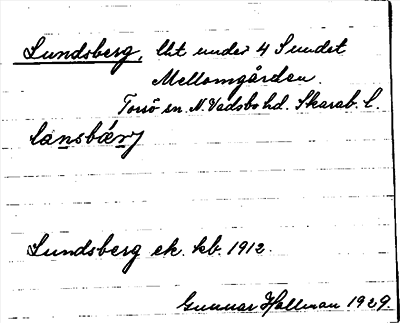 Lundsberg, lht under 4 Sundet
Mellomgården.
Torsö sn. N. Vadsbo hd. Skarab. l.
Lundsberg ek. kb. 1912.
Gunnar Hallman 1929